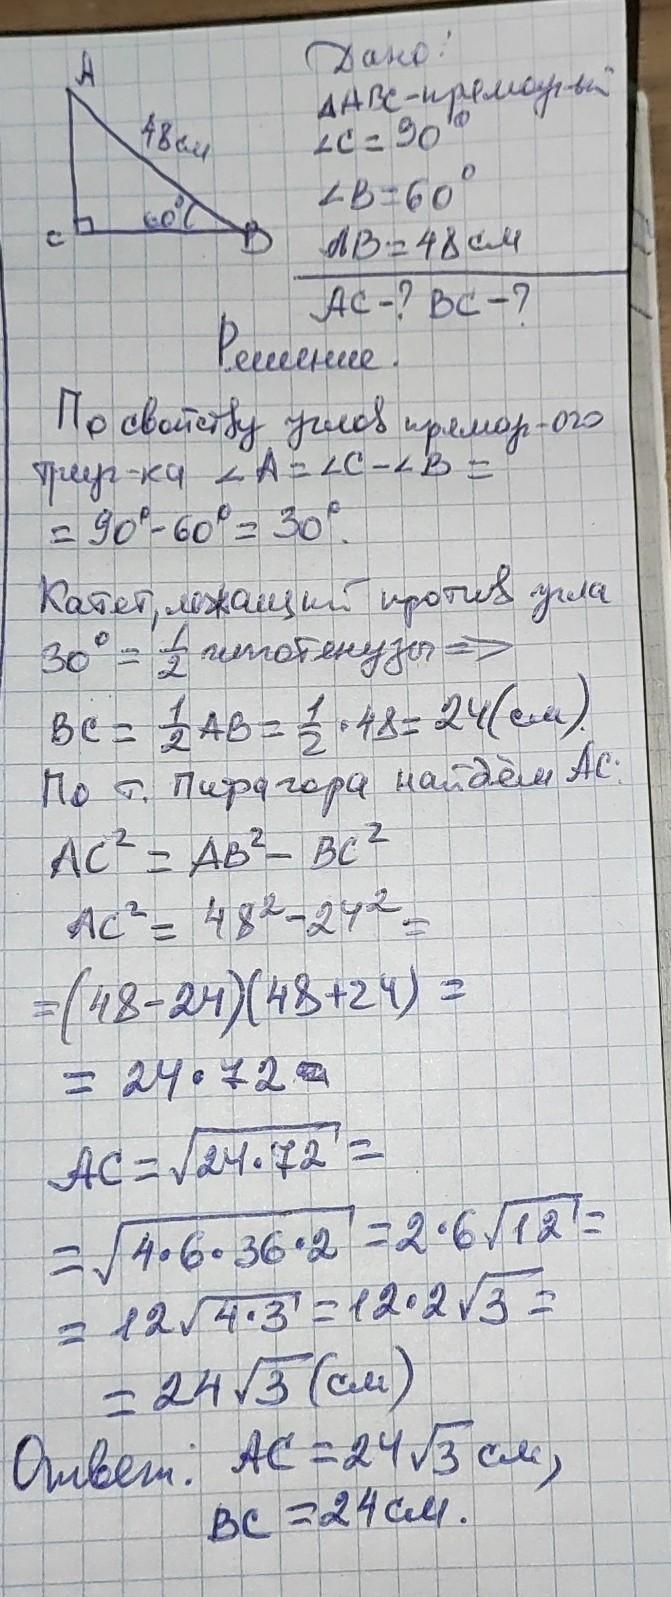 A
48см
60°
C
B
Дано:
△ABC-прямоуг-ый
∠C=90°
∠B=60°
AB=48см
AC-? BC-?
Решение.
По свойству углов прямоуг-ого
треуг-ка ∠A=∠C-∠B=
=90°-60°=30°.
Катет, лежащий против угла
30° = 1/2 гипотенузы =>
BC = 1/2 AB = 1/2 · 48 = 24 (см).
По т. Пифагора найдём AC:
AC² = AB² - BC²
AC² = 48² - 24² =
=(48-24)(48+24) =
= 24·72
AC = √(24·72) =
= √(4·6·36·2) = 2·6√12 =
= 12√(4·3) = 12·2√3 =
= 24√3 (см)
Ответ: AC = 24√3 см,
BC = 24 см.